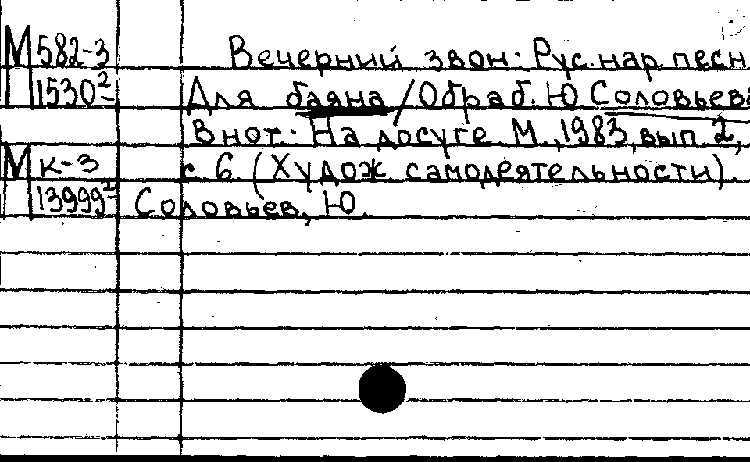 М 582-3 Вечерний звон: Рус. нар. песн
П 1530² Для баяна / Обраб. Ю. Соловьев
В нот.: На досуге. М., 1983, вып. 2,
М к-3 с. 6. (Худож. самодеятельности).
П 13999² Соловьев, Ю.